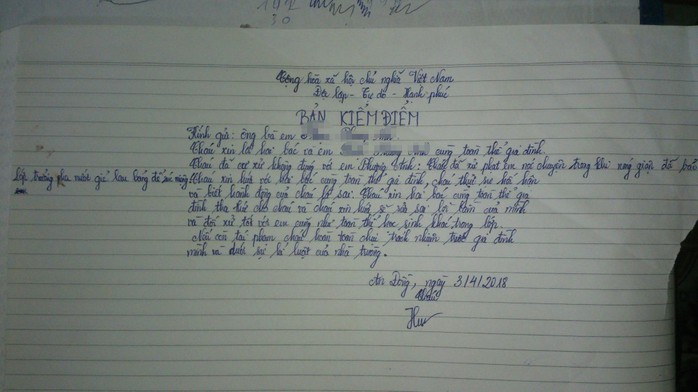 Cộng hòa xã hội chủ nghĩa Việt Nam
Độc lập - Tự do - Hạnh phúc
BẢN KIỂM ĐIỂM
Kính gửi: ông bà em
Cháu xin lỗi hai bác và em cùng toàn thể gia đình.
Cháu đã cư xử không đúng với em Phương Cháu đã xử phạt em nói chuyện trong khi nóng giận đã bảo
lớp trưởng pha nước giẻ lau bảng
Cháu xin hứa với hai bác cùng toàn thể gia đình, cháu thực sự hối hận
và biết hành động của cháu là sai. Cháu xin hai bác cùng toàn thể gia
đình tha thứ cho cháu và cháu xin hứa sẽ sửa sai lỗi lầm của mình
và đối xử tốt với em cũng như toàn thể học sinh khác trong lớp.
Nếu còn tái phạm cháu hoàn toàn chịu trách nhiệm trước gia đình
mình và dưới sự kỉ luật của nhà trường.
An Đồng, ngày 3/4/2018
Cháu